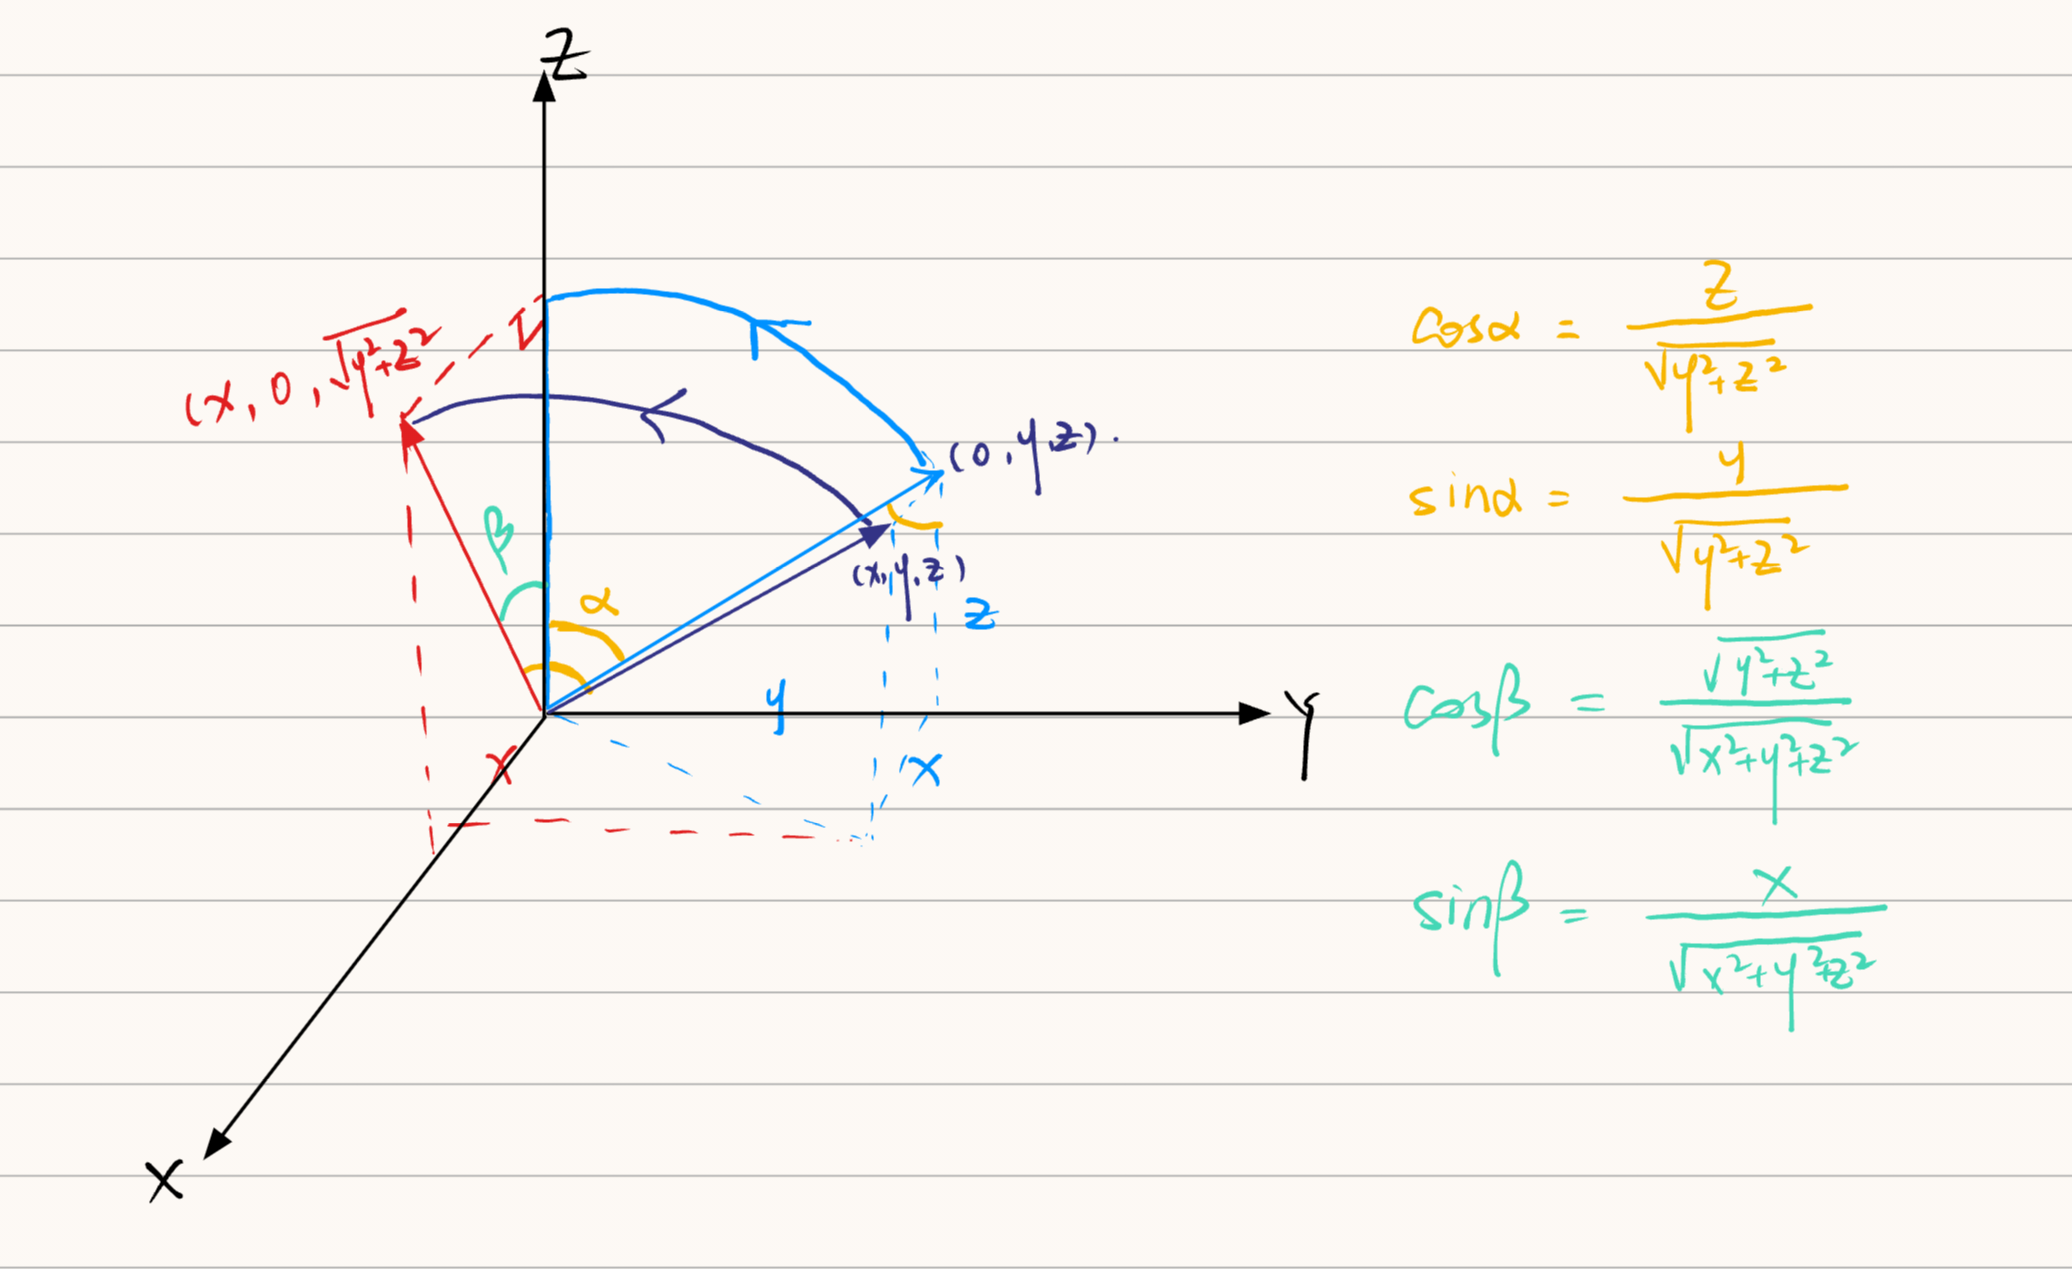 Z
(x, 0, √y²+z²
(0, y, z).
(x, y, z)
β
α
z
y
Y
x
x
X
cosα = z / √y²+z²
sinα = y / √y²+z²
cosβ = √y²+z² / √x²+y²+z²
sinβ = x / √x²+y²+z²